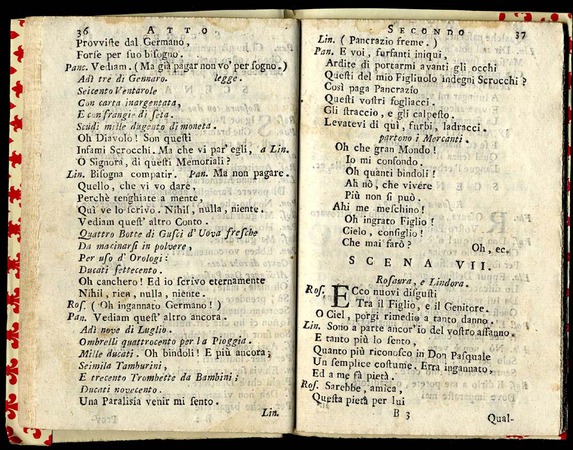 36 ATTO
Provviste dal Germano,
Forse per suo bisogno.
Pan. Vediam. (Ma già pagar non vo' per sogno.)
Adì tre di Gennaro. legge.
Seicento Ventarole
Con carta inargentata,
E con frangie di seta.
Scudi mille dugento di moneta.
Oh Diavolo! Son questi
Infami Scrocchi. Ma che vi par' egli, a Lin.
O Signora, di questi Memoriali?
Lin. Bisogna compatir. Pan. Ma non pagare.
Quello, che vi vo dare,
Perchè tenghiate a mente,
Quì ve lo scrivo. Nihil, nulla, niente.
Vediam quest' altro Conto.
Quattro Botte di Gusci d'Uova fresche
Da macinarsi in polvere,
Per uso d'Orologi:
Ducati settecento.
Oh canchero! Ed io scrivo eternamente
Nihil, rien, nulla, niente.
Ros. (Oh ingannato Germano!)
Pan. Vediam quest' altro ancora.
Adì nove di Luglio.
Ombrelli quattrocento per la Pioggia.
Mille ducati. Oh bindoli! E più ancora;
Seimila Tamburini,
E trecento Trombette da Bambini;
Ducati novecento.
Una Paralisia venir mi sento.
Lin.
SECONDO 37
Lin. (Pancrazio freme.)
Pan. E voi, furfanti iniqui,
Ardite di portarmi avanti gli occhi
Questi del mio Figliuolo indegni Scrocchi?
Così paga Pancrazio
Questi vostri fogliacci.
Gli straccio, e gli calpesto.
Levatevi di quì, furbi, ladracci.
partono i Mercanti.
Oh che gran Mondo!
Io mi confondo.
Oh quanti bindoli!
Ah nò, che vivere
Più non si può.
Ahi me meschino!
Oh ingrato Figlio!
Cielo, consiglio!
Che mai farò? Oh, ec.
SCENA VII.
Rosaura, e Lindora.
Ros. Ecco nuovi disgusti
Tra il Figlio, e il Genitore.
O Ciel, porgi rimedio a tanto danno.
Lin. Sono a parte ancor' io del vostro affanno.
E tanto più lo sento,
Quanto più riconosco in Don Pasquale
Un semplice costume. Erra ingannato,
Ed a me fà pietà.
Ros. Sarebbe, amica,
Questa pietà per lui
B 3 Qual-